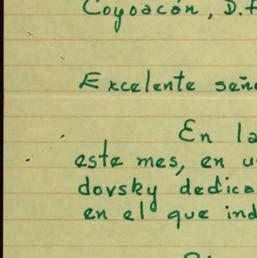 Coyoacán, D.F
Excelente seño
En la
este mes, en u
dovsky dedica
en el que ind